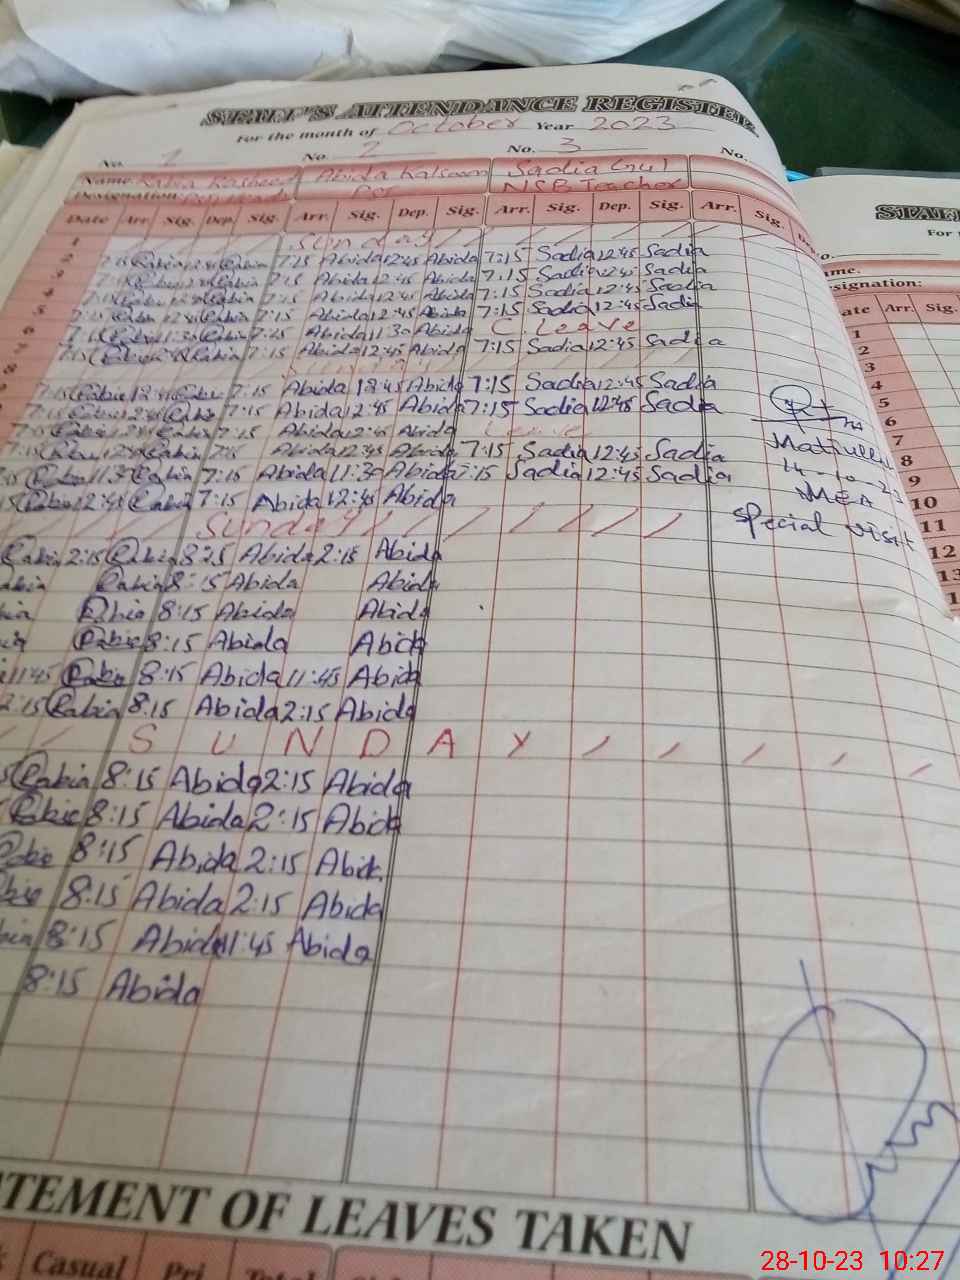 STAFF'S ATTENDANCE REGISTER
For the month of October Year 2023
No. 1 No. 2 No. 3 No.
Name. Rabia Rasheed Abida Kalsoom Sadia Gul
Designation: NSB Teacher
Date Arr. Sig. Dep. Sig. Arr. Sig. Dep. Sig. Arr. Sig. Dep. Sig. Arr. Sig.
1 Sunday
2 7:15 Rabia 12:45 Rabia 7:15 Abida 12:45 Abida 7:15 Sadia 12:45 Sadia
3 7:15 Rabia 12:45 Rabia 7:15 Abida 12:45 Abida 7:15 Sadia 12:45 Sadia
4 7:15 Rabia 12:45 Rabia 7:15 Abida 12:45 Abida 7:15 Sadia 12:45 Sadia
5 7:15 Rabia 12:45 Rabia 7:15 Abida 12:45 Abida 7:15 Sadia 12:45 Sadia
6 7:15 Rabia 11:30 Rabia 7:15 Abida 11:30 Abida C. Leave
7 7:15 Rabia 12:45 Rabia 7:15 Abida 12:45 Abida 7:15 Sadia 12:45 Sadia
8 Sunday
7:15 Rabia 12:45 Rabia 7:15 Abida 12:45 Abida 7:15 Sadia 12:45 Sadia
7:15 Rabia 12:45 Rabia 7:15 Abida 12:45 Abida 7:15 Sadia 12:45 Sadia
7:15 Rabia 12:45 Rabia 7:15 Abida 12:45 Abida Leave
7:15 Rabia 12:45 Rabia 7:15 Abida 12:45 Abida 7:15 Sadia 12:45 Sadia
Rabia 11:30 Rabia 7:15 Abida 11:30 Abida 7:15 Sadia 12:45 Sadia
Rabia 12:45 Rabia 7:15 Abida 12:45 Abida
Sunday
Rabia 2:15 Rabia 8:15 Abida 2:15 Abida
Rabia 8:15 Abida Abida
Rabia 8:15 Abida Abida
Rabia 8:15 Abida Abida
11:45 Rabia 8:15 Abida 11:45 Abida
2:15 Rabia 8:15 Abida 2:15 Abida
SUNDAY
Rabia 8:15 Abida 2:15 Abida
Rabia 8:15 Abida 2:15 Abida
Rabia 8:15 Abida 2:15 Abida
8:15 Abida 2:15 Abida
8:15 Abida 11:45 Abida
8:15 Abida
Matiullah
14-10-23
MEA
special visit
STATEMENT OF LEAVES TAKEN
Casual Pri Total
For
Arr. Sig.
1
2
3
4
5
6
7
8
9
10
11
12
13
28-10-23 10:27